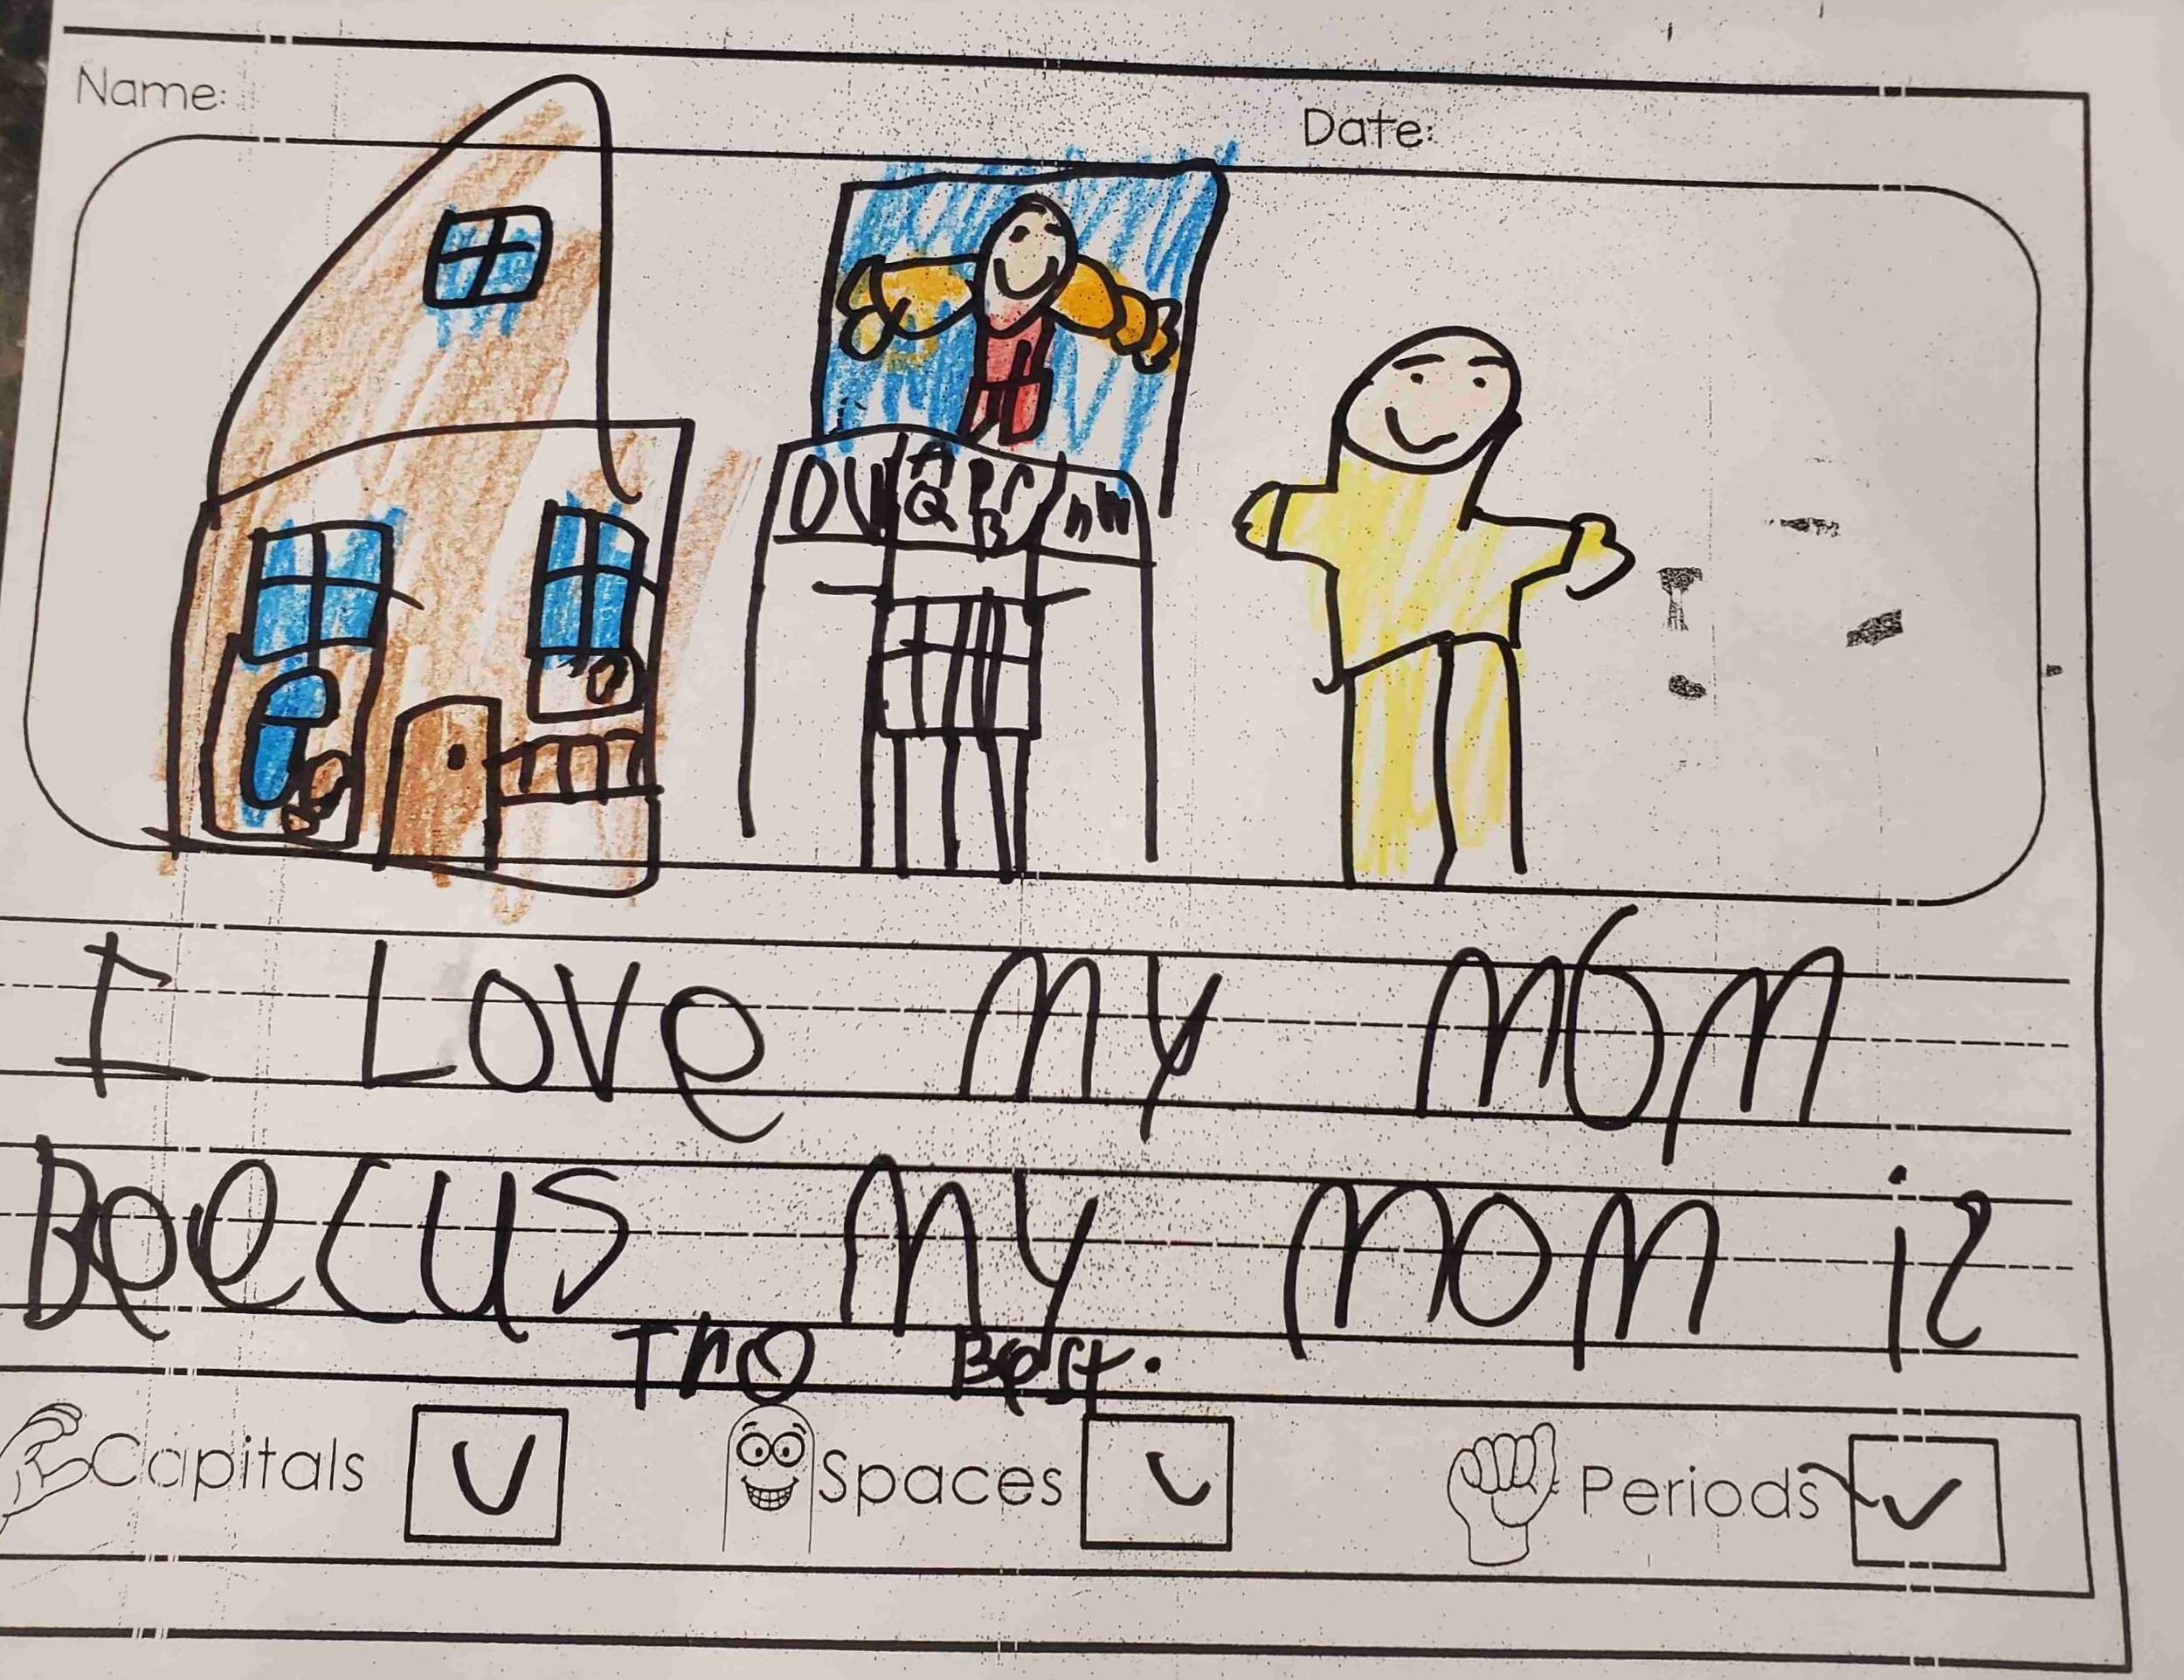 Name: Date:
I Love my mom
Beecus my mom is
The Best.
Capitals Spaces Periods